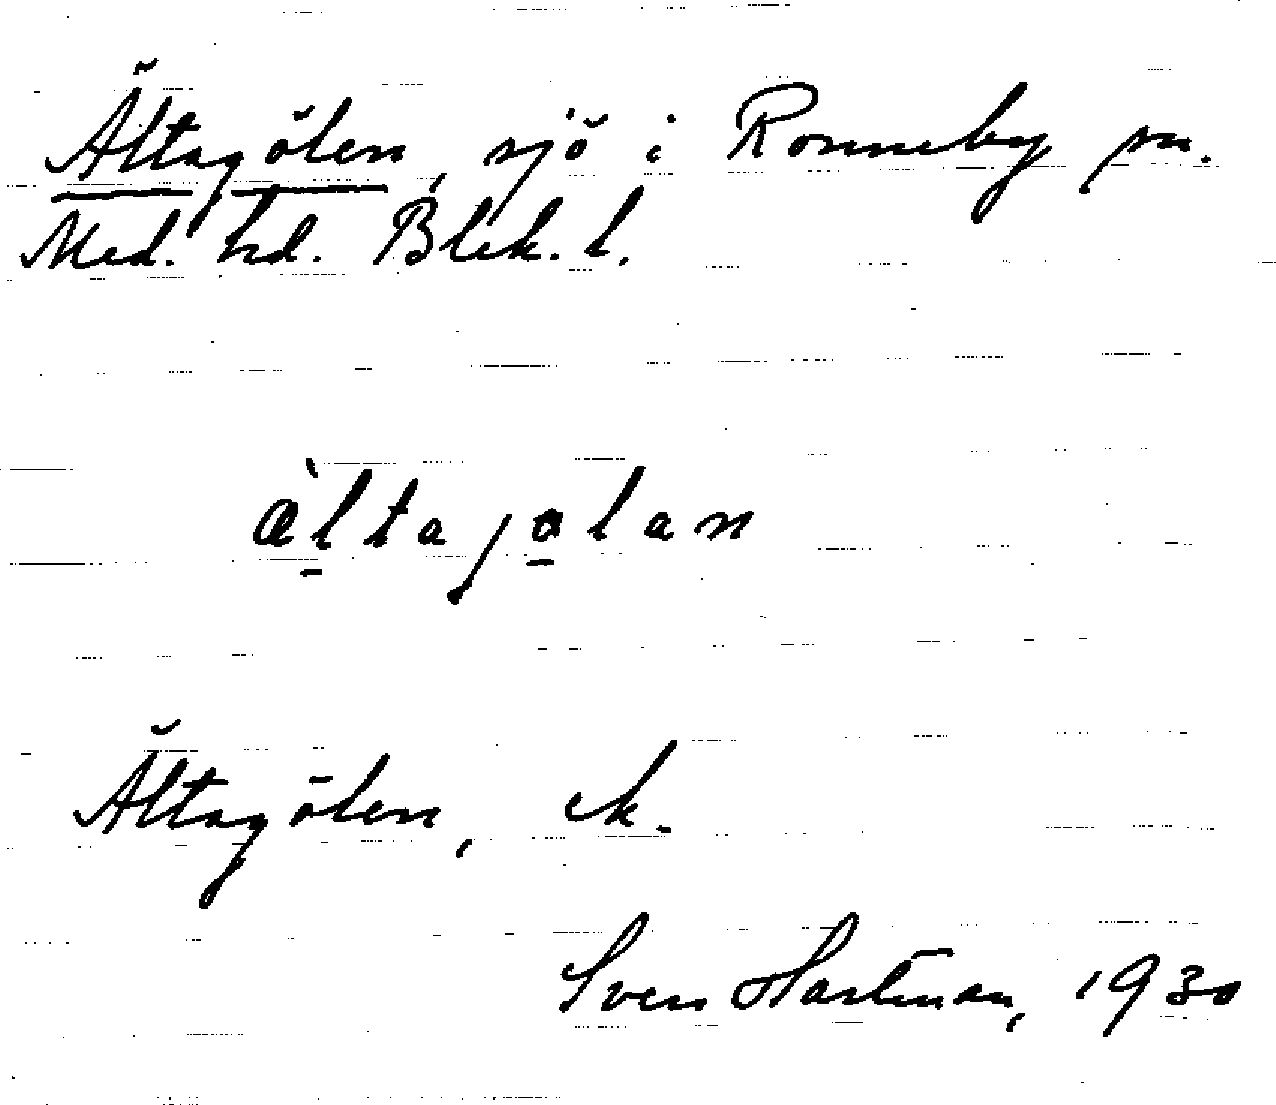 Ältagölen, sjö i Ronneby sn.
Med. hd. Blek. l.
æ̀ltajølan
Ältagölen, ek.
Sven Hartman, 1930